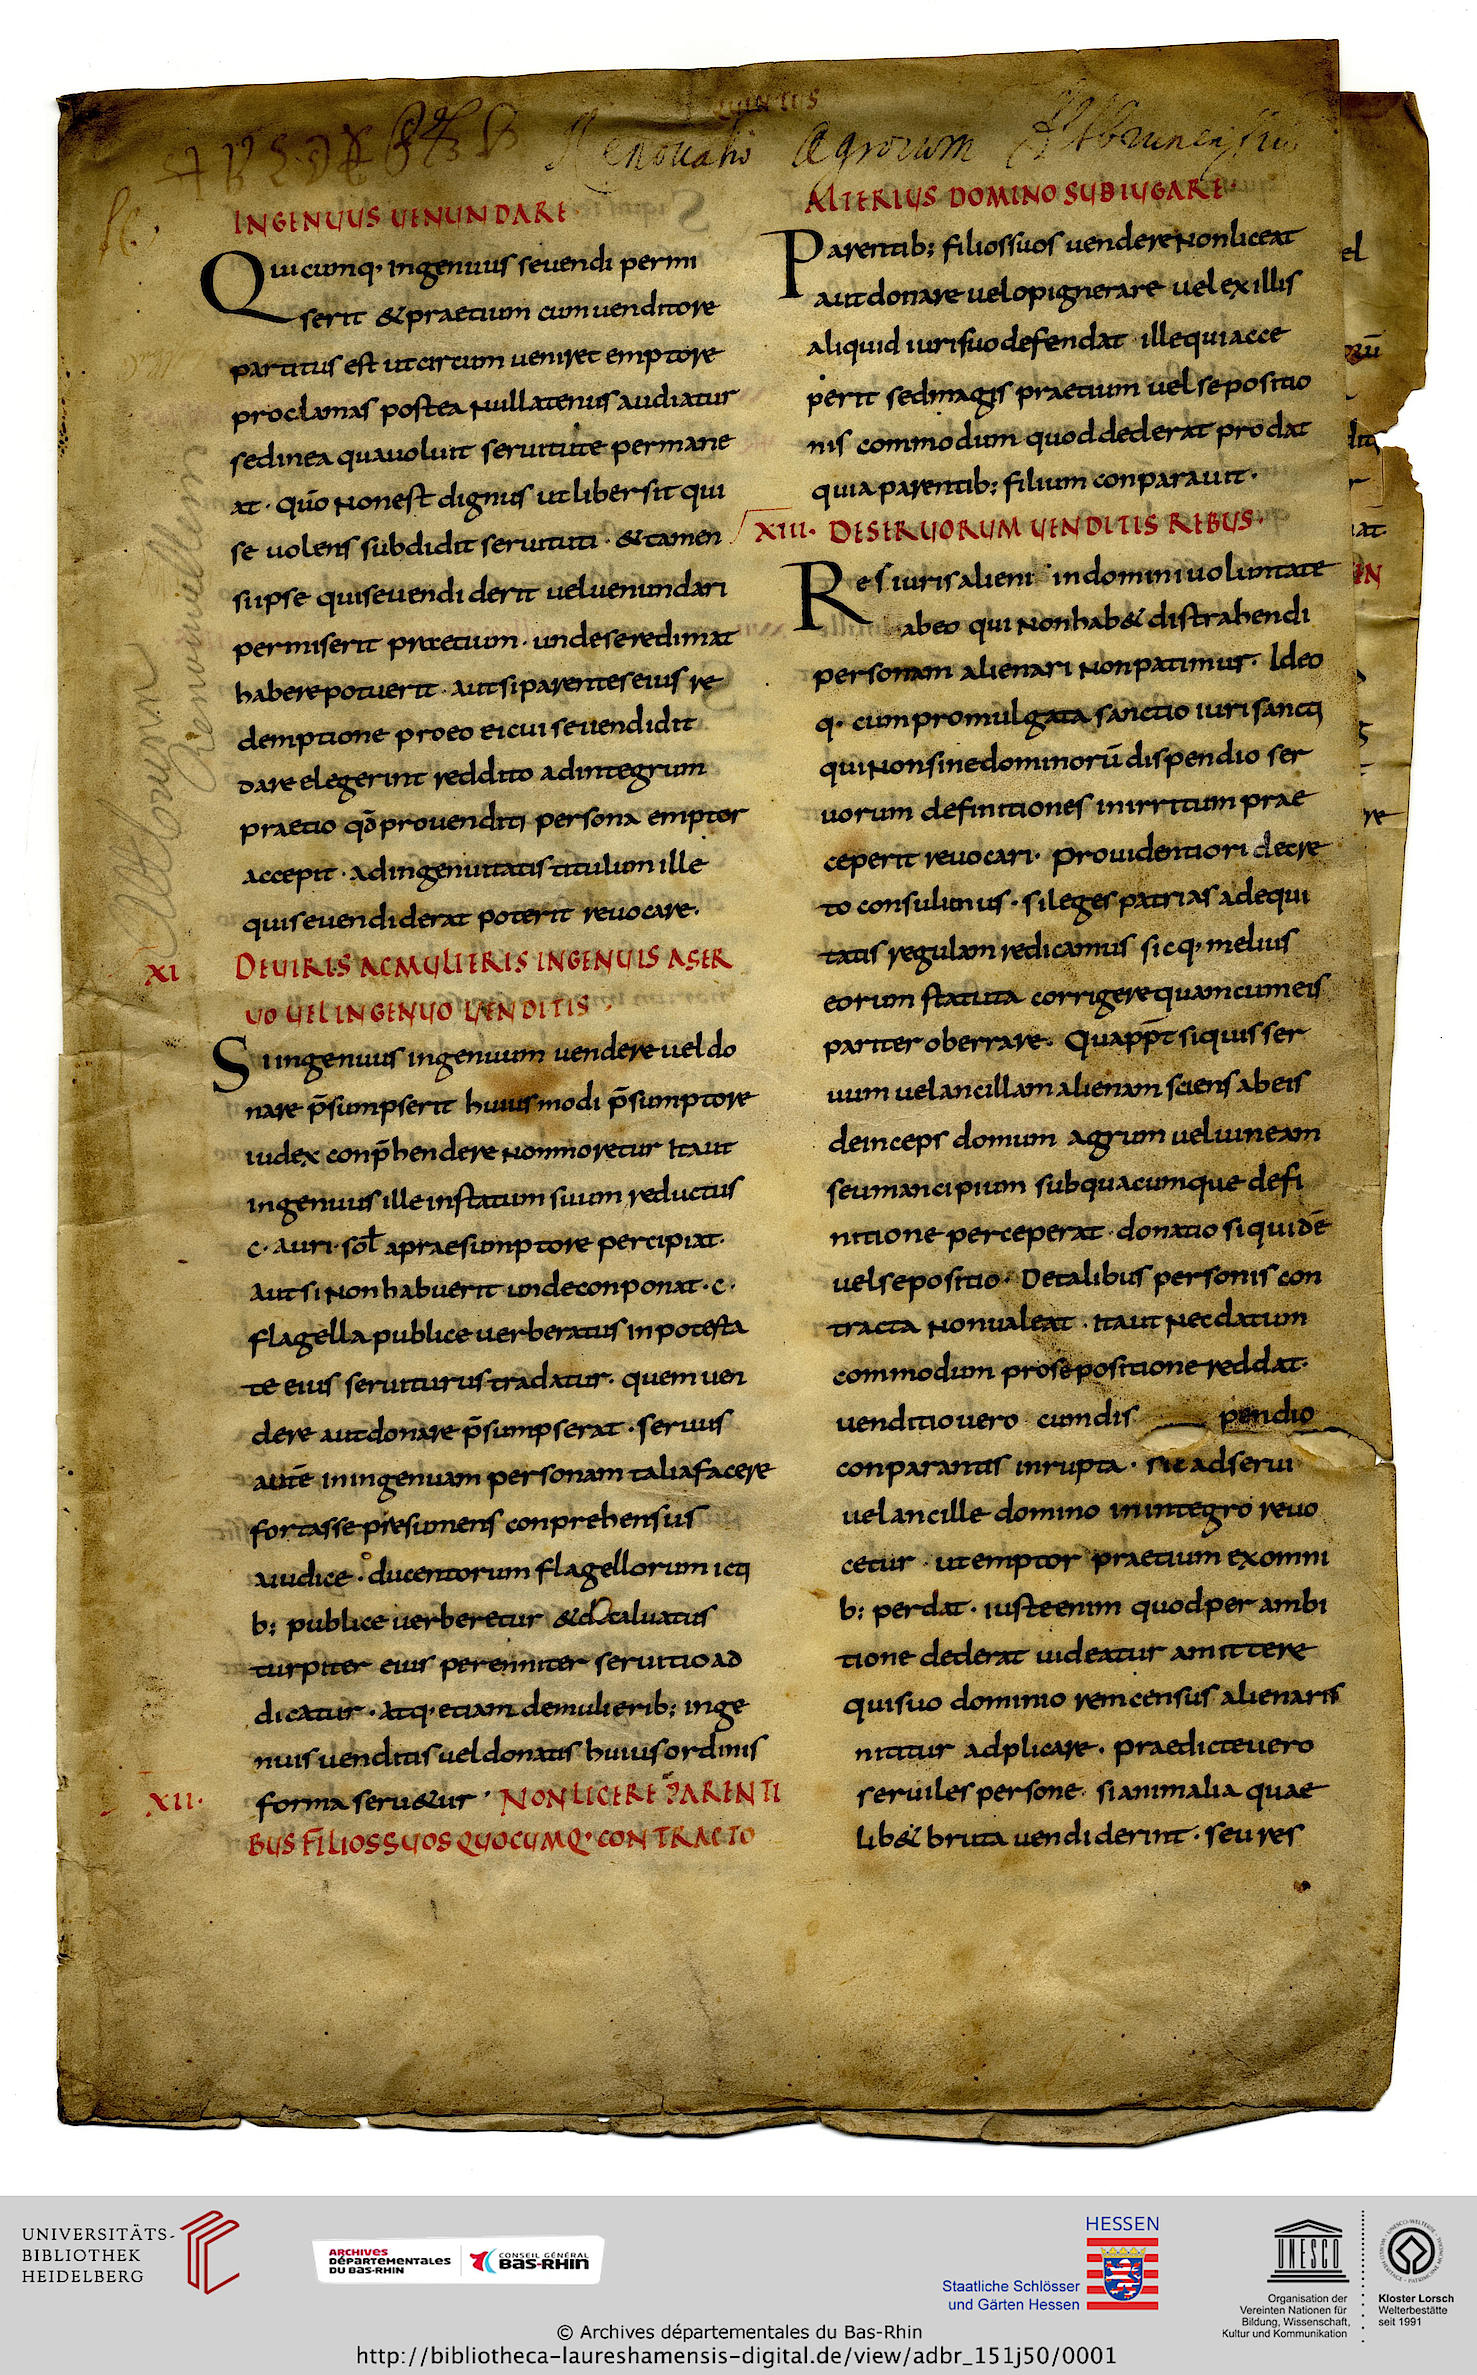 QUINTUS
Renovatio Agrorum Altbrunensium
INGENUUS UENUNDARE·
Quicumq, ingenuus se uendi permi
serit &praetium cum uenditore
partitus est ut circum ueniret emptore
proclamas postea nullatenus audiatur
sed in ea qua uoluit seruitute permane
at · quō non est dignus ut liber sit qui
se uolens subdidit seruituti · &tamen
si ipse qui se uendiderit uel uenundari
permiserit praetium · unde se redimat
habere potuerit · aut si parentes eius re
demptione pro eo ei cui se uendidit
dare elegerint reddito ad integrum
praetio qđ pro uenditi persona emptor
accepit · ad ingenuitatis titulum ille
qui se uendiderat poterit reuocare·
XI DE UIRIS AC MULIERIS INGENUIS A SER
UO UEL INGENUO UENDITIS ·
Si ingenuus ingenuum uendere uel do
nare p̄sumpserit huius modi p̄sumptore
iudex conp̄hendere non moretur Ita ut
ingenuus ille in statum suum reductus
c· auri· sol̄ a praesumptore percipiat·
aut si non habuerit unde conponat · c ·
flagella publice uerberatus in potesta
te eius seruiturus tradatur · quem uen
dere aut donare p̄sumpserat · seruus
autē in ingenuam personam talia facere
fortasse presumens conprehensus
a iudice · ducentorum flagellorum icti
b; publice uerberetur &decaluatus
turpiter eius perenniter seruitio ad
dicatur · atq, etiam de mulierib; inge
nuis uenditis uel donatis huius ordinis
XII· forma seru&ur · NON LICERE PARENTI
BUS FILIOS SUOS QUOCUMQ· CONTRACTO
ALTERIUS DOMINO SUBIUGARE·
Parentib; filios suos uendere non liceat
aut donare uel opignerare uel ex illis
aliquid iuri suo defendat · ille qui acce
perit sed magis praetium uel sepositio
nis commodum quod dederat prodat
quia parentib; filium conparauit ·
XIII· DE SERUORUM UENDITIS REBUS·
Res iuris alieni in domini uoluntate
ab eo qui non hab& distrahendi
personam alienari non patimur· Ideo
q· cum promulgata sanctio iuri sancti
qui non sine dominorū dispendio ser
uorum definitiones in irritum prae
ceperit reuocari· prouidentiori decre
to consulimus · si leges patrias ad equi
tatis regulam redicamus sicq, melius
eorum statuta corrigere quam cum eis
pariter oberrare· Quapp̄t si quis ser
uum uel ancillam alienam sciens ab eis
deinceps domum agrum uel uineam
seu mancipium sub quacumque defi
nitione perceperat · donatio siquidē
uel sepositio· De talibus personis con
tracta non ualeat · Ita ut nec datum
commodum pro sepositione reddat·
uenditio uero cum dis pendio
conparantis inrupta · sic ad serui
uel ancille domino in integro reuo
cetur · ut emptor praetium ex omni
b; perdat · iuste enim quod per ambi
tione dederat uideatur amittere
qui suo dominio rem census alienaris
nititur adplicare · praedicte uero
seruiles persone· si animalia quae
lib& bruta uendiderint · seu res
UNIVERSITÄTS-
BIBLIOTHEK
HEIDELBERG
ARCHIVES
DÉPARTEMENTALES
DU BAS-RHIN
CONSEIL GÉNÉRAL
BAS-RHIN
HESSEN
Staatliche Schlösser
und Gärten Hessen
UNESCO
Organisation der
Vereinten Nationen für
Bildung, Wissenschaft,
Kultur und Kommunikation
Kloster Lorsch
Welterbestätte
seit 1991
© Archives départementales du Bas-Rhin
http://bibliotheca-laureshamensis-digital.de/view/adbr_151j50/0001